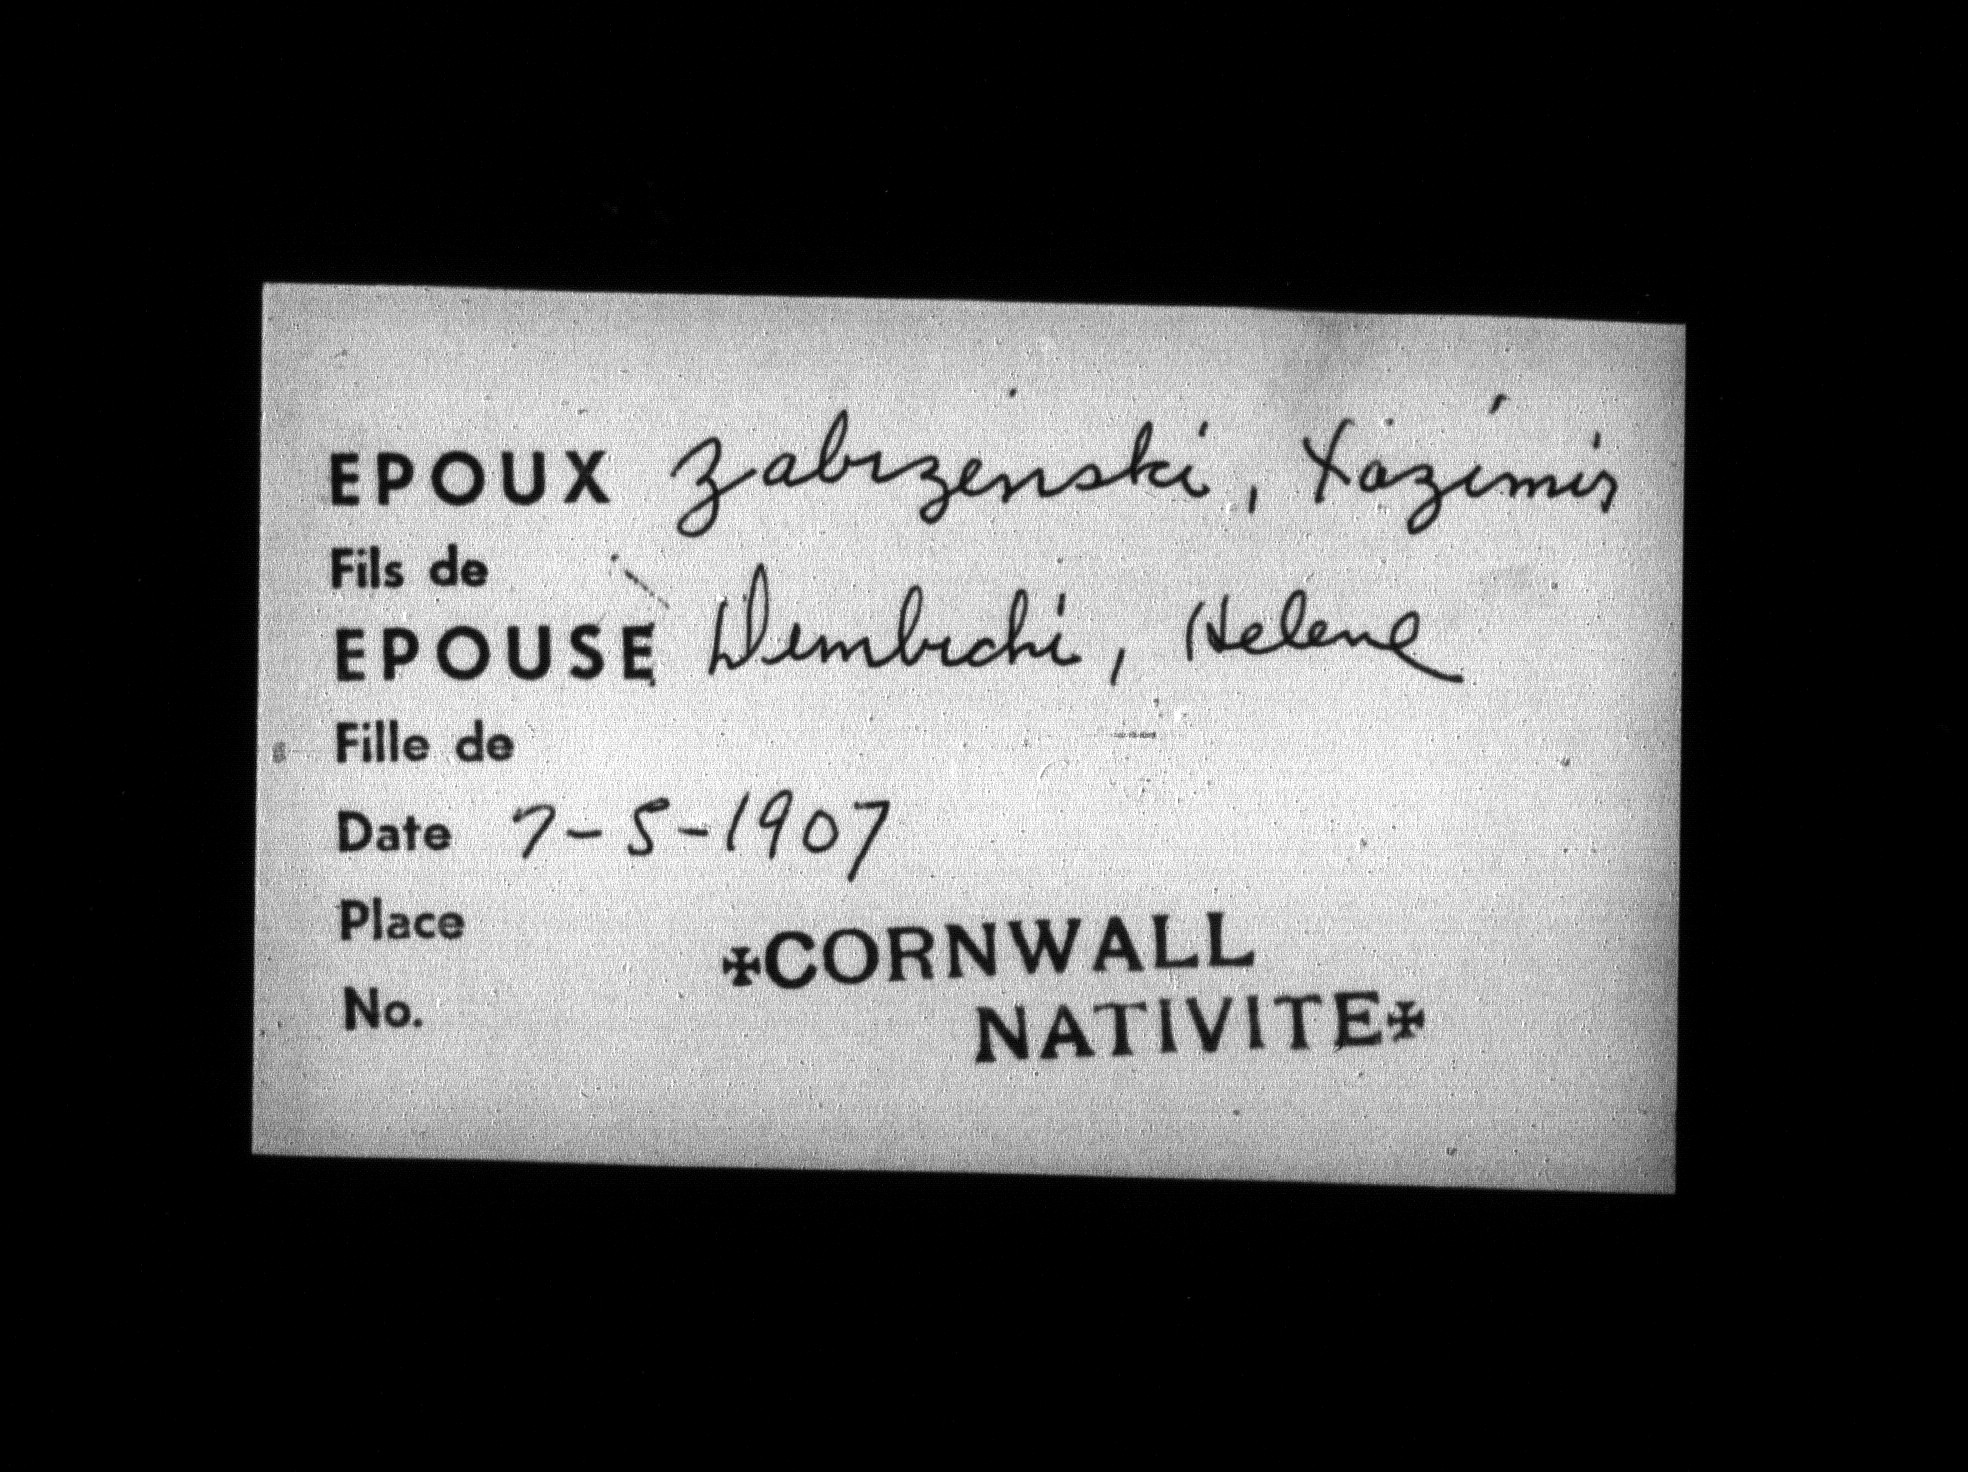 EPOUX Zabrzenski, Kazimir
Fils de
EPOUSE Dembichi, Helene
Fille de
Date 7-5-1907
Place
✠CORNWALL
No.
NATIVITE✠